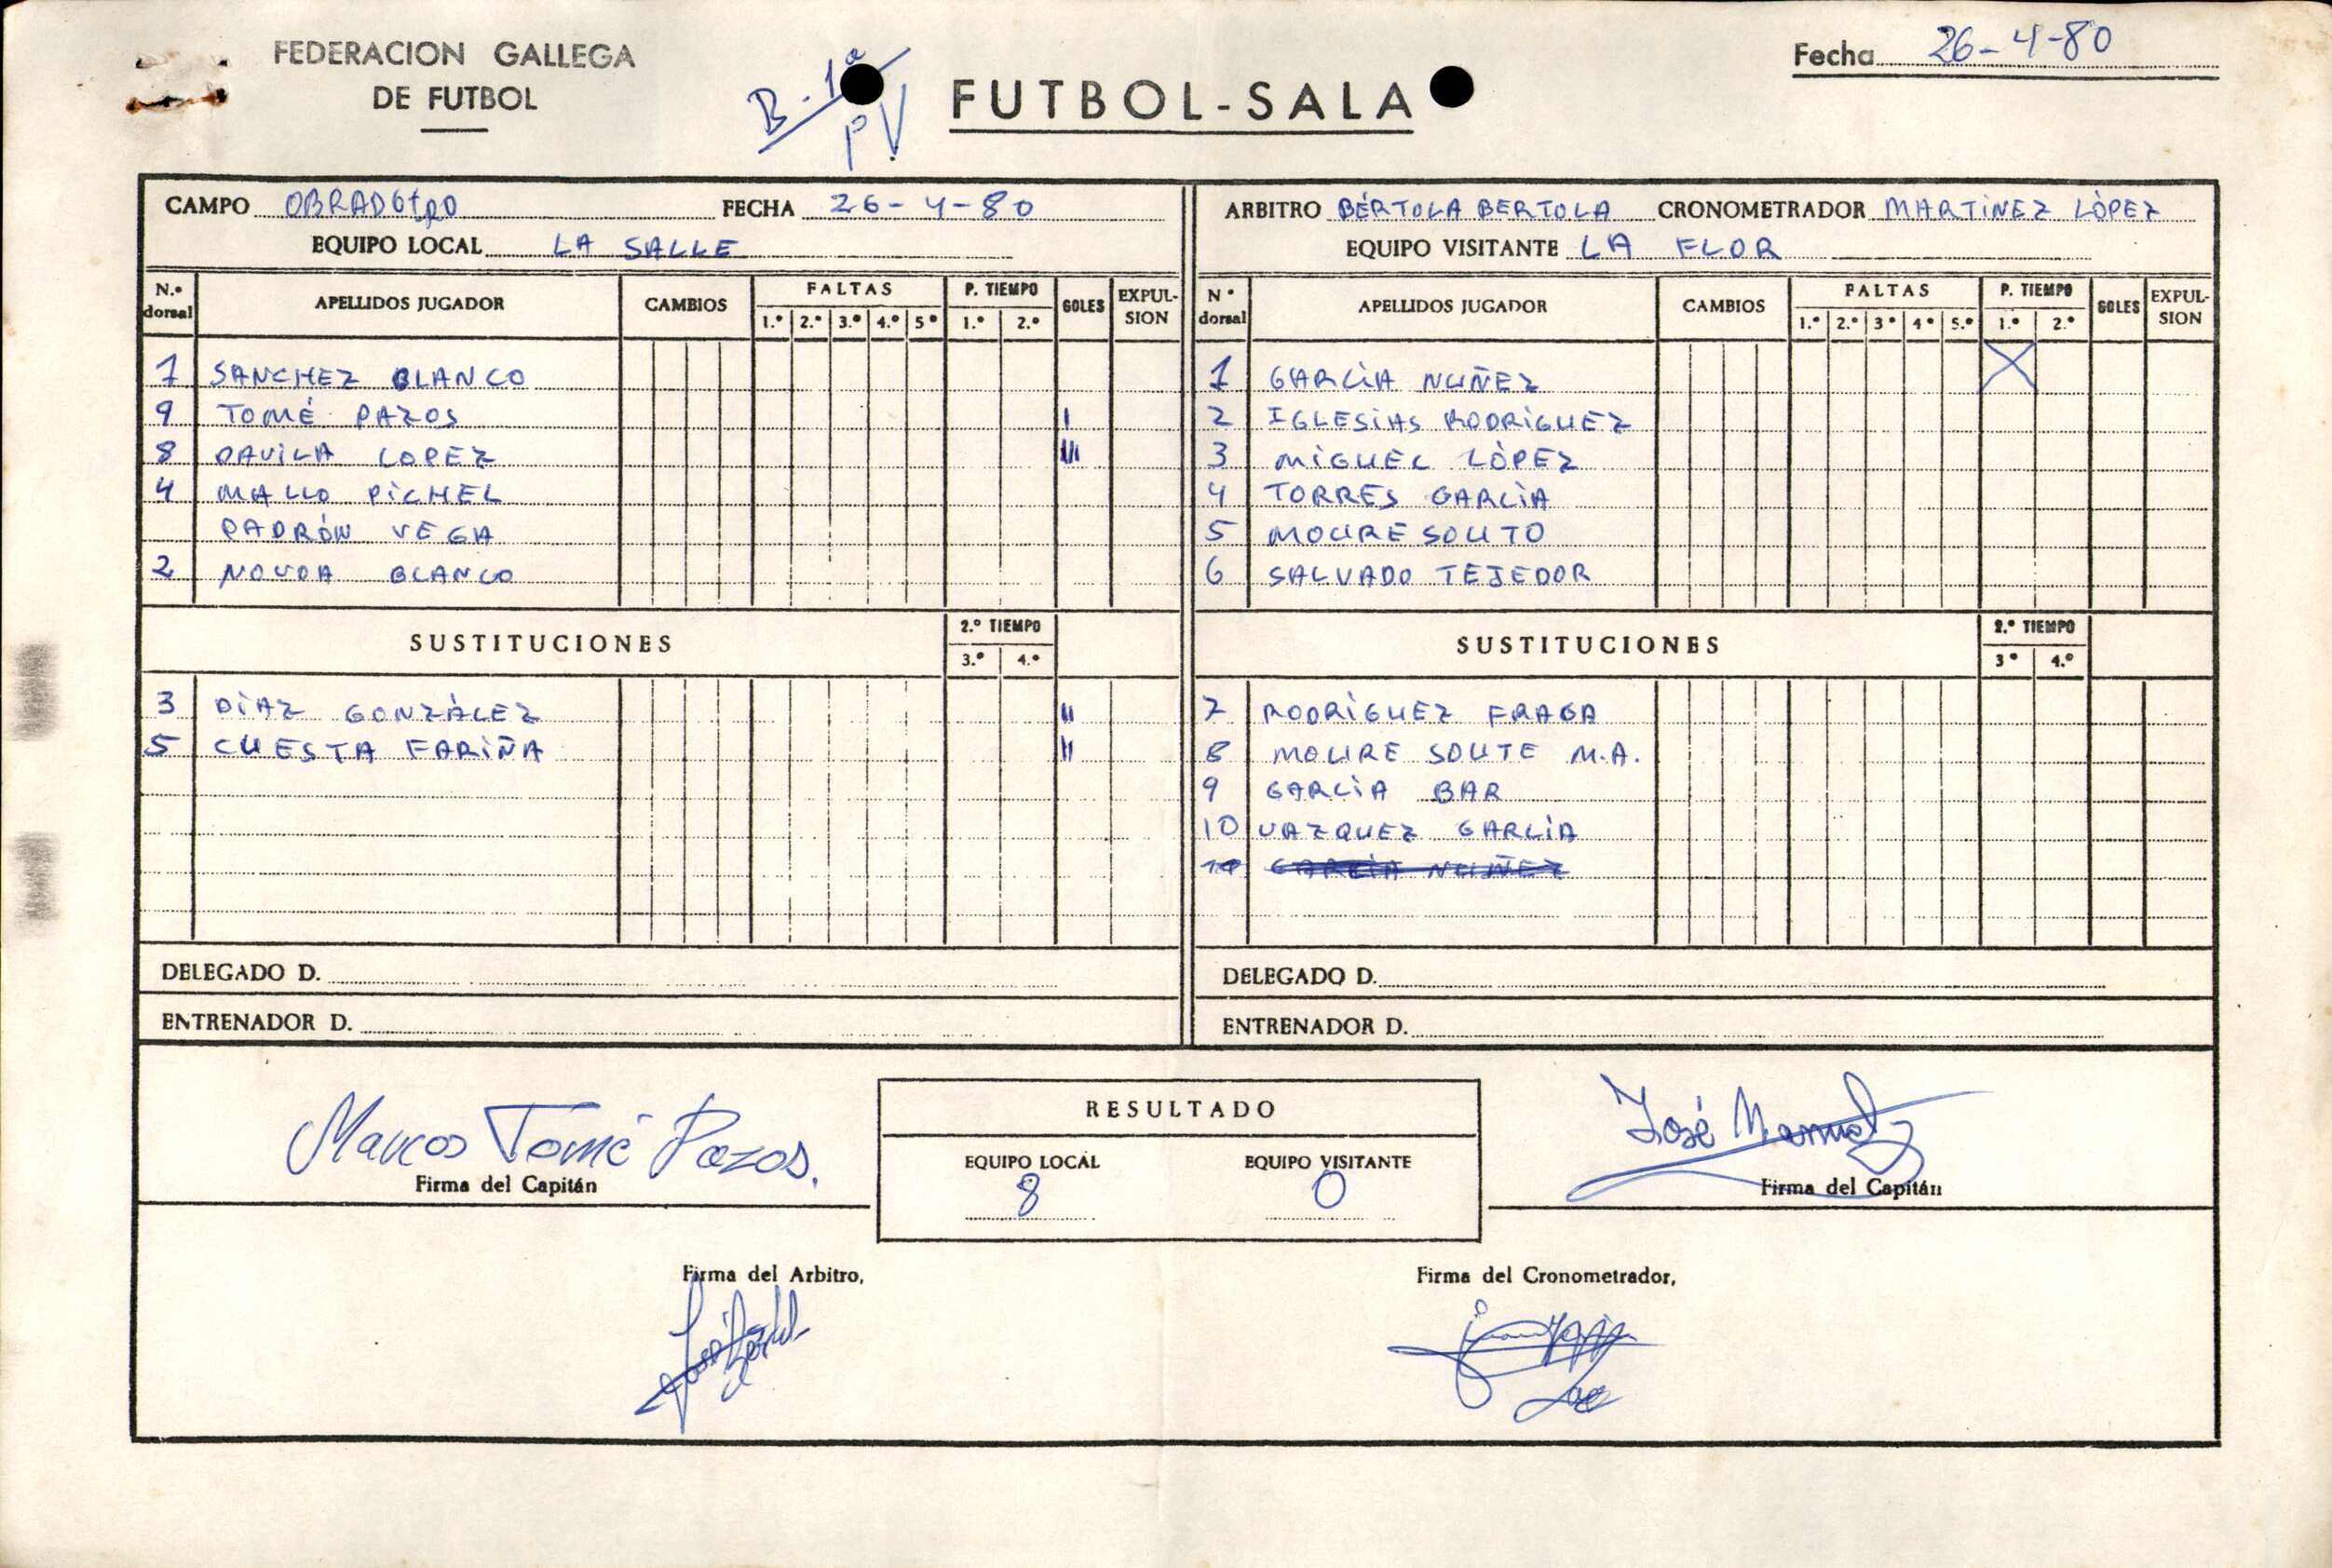 FEDERACION GALLEGA
DE FUTBOL
B-1ª
PV
FUTBOL-SALA
Fecha 26-4-80
CAMPO OBRADOIRO FECHA 26-4-80
EQUIPO LOCAL LA SALLE
N.º dorsal APELLIDOS JUGADOR CAMBIOS FALTAS 1.º 2.º 3.º 4.º 5º P. TIEMPO 1.º 2.º GOLES EXPULSION
1 SANCHEZ BLANCO
9 TOMÉ PAZOS I
8 DAVILA LOPEZ III
4 MALLO PICHEL
PADRÓN VEGA
2 NOVOA BLANCO
SUSTITUCIONES 2.º TIEMPO 3.º 4.º
3 DÍAZ GONZÁLEZ II
5 CUESTA FARIÑA II
DELEGADO D.
ENTRENADOR D.
ARBITRO BÉRTOLA BERTOLA CRONOMETRADOR MARTÍNEZ LÓPEZ
EQUIPO VISITANTE LA FLOR
Nº dorsal APELLIDOS JUGADOR CAMBIOS FALTAS 1.º 2.º 3º 4º 5.º P. TIEMPO 1.º 2.º GOLES EXPULSION
1 GARCÍA NUÑEZ X
2 IGLESIAS RODRÍGUEZ
3 MIGUEL LÓPEZ
4 TORRES GARCÍA
5 MOURE SOUTO
6 SALVADO TEJEDOR
SUSTITUCIONES 2.º TIEMPO 3º 4.º
7 RODRÍGUEZ FRAGA
8 MOURE SOUTE M.A.
9 GARCÍA BAR
10 VAZQUEZ GARCÍA
GARCÍA NUÑEZ
DELEGADO D.
ENTRENADOR D.
Marcos Tomé Pazos.
Firma del Capitán
RESULTADO
EQUIPO LOCAL EQUIPO VISITANTE
8 0
José Manuel
Firma del Capitán
Firma del Arbitro,
Firma del Cronometrador,